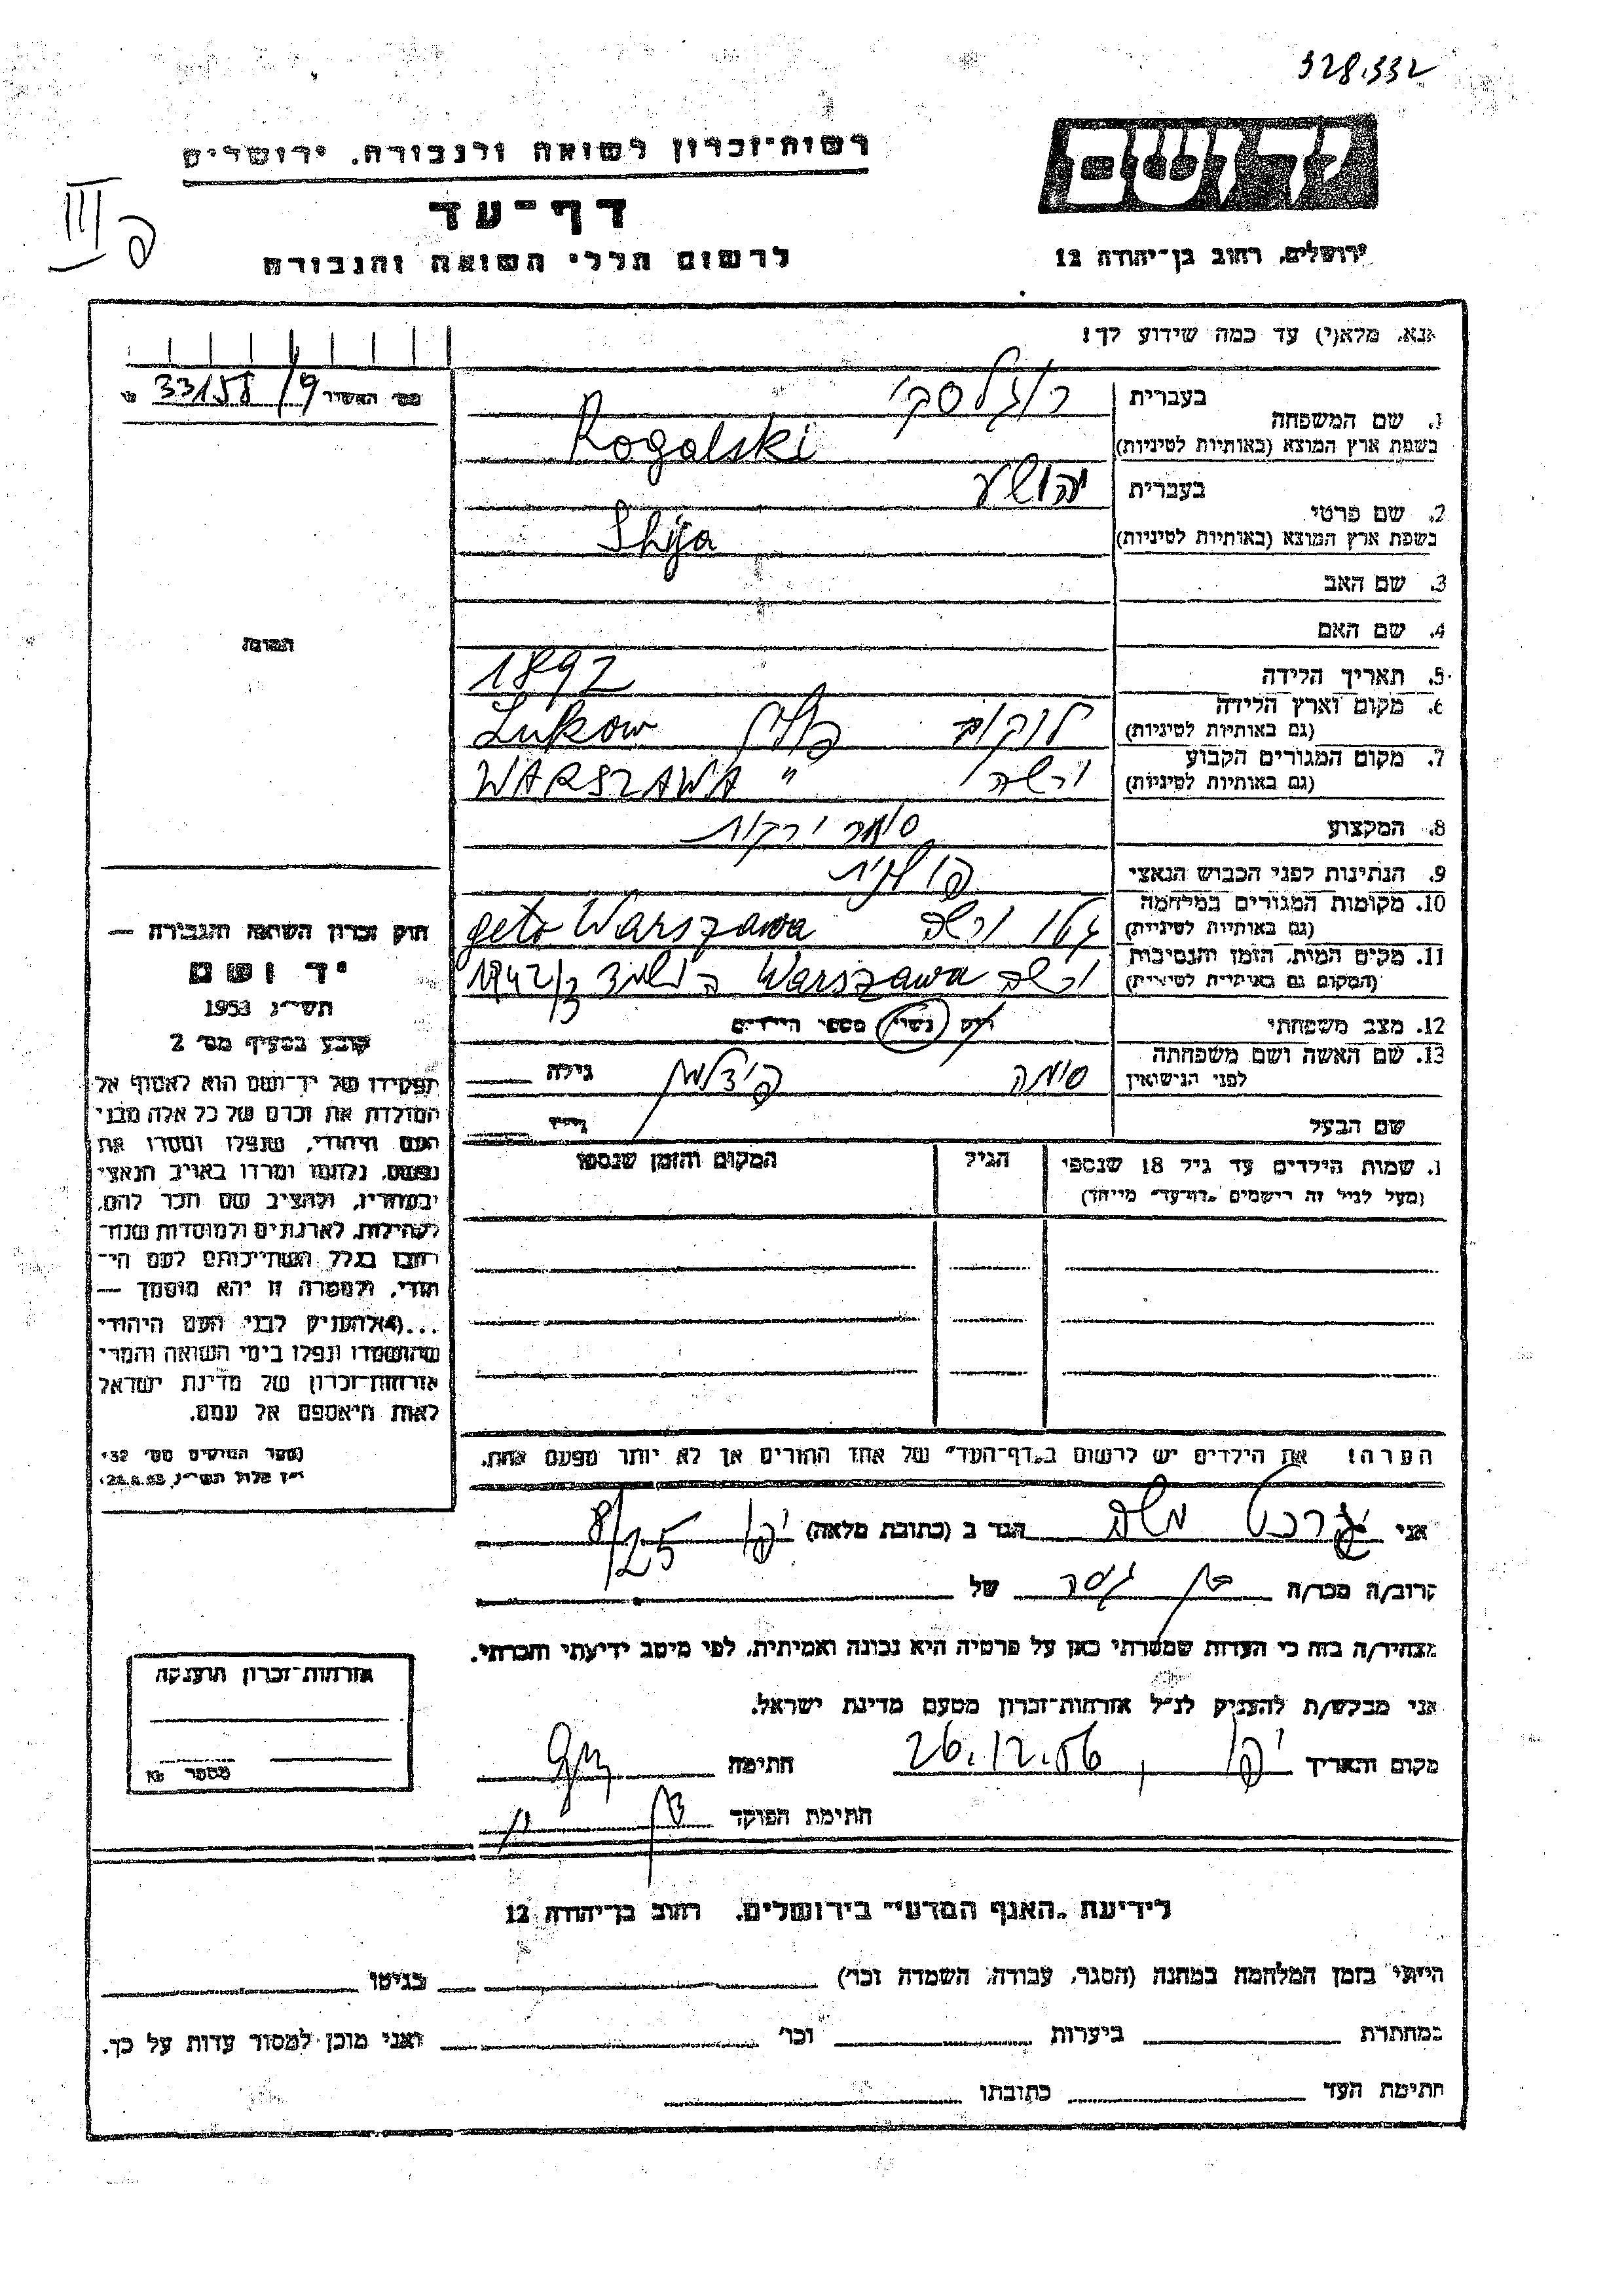 328.332
יד ושם
רשות־זכרון לשואה ולגבורה, ירושלים
דף־עד
לרשום חללי השואה והגבורה
ירושלים, רחוב בן־יהודה 12
III פ
אנא, מלא(י) עד כמה שידוע לך!
מס׳ האשרור 33158/9
1. שם המשפחה
בעברית רוגלסקי
בשפת ארץ המוצא (באותיות לטיניות) Rogalski
2. שם פרטי
בעברית יהושע
בשפת ארץ המוצא (באותיות לטיניות) Shija
3. שם האב
4. שם האם
5. תאריך הלידה 1892
6. מקום וארץ הלידה (גם באותיות לטיניות) לוקוב פולין Lukow
7. מקום המגורים הקבוע (גם באותיות לטיניות) ורשה " WARSZAWA
8. המקצוע סוחר ירקות
9. הנתינות לפני הכבוש הנאצי פולנית
10. מקומות המגורים במלחמה (גם באותיות לטיניות) גטו ורשה geto Warszawa
11. מקום המות, הזמן והנסיבות (המקום גם באותיות לטיניות) ורשה Warszawa 1942/3
12. מצב משפחתי רוק נשוי מספר הילדים
13. שם האשה ושם משפחתה לפני הנישואין סימה גילה
שם הבעל גילו
התמונה
חוק זכרון השואה והגבורה —
יד ושם
תשי״ג 1953
קובע בסעיף מס׳ 2
תפקידו של יד־ושם הוא לאסוף אל
המולדת את זכרם של כל אלה מבני
העם היהודי, שנפלו ומסרו את
נפשם, נלחמו ומרדו באויב הנאצי
ובעוזריו, ולהציב שם וזכר להם,
לקהילות, לארגונים ולמוסדות שנח־
רבו בגלל השתייכותם לעם הי־
הודי, ולמטרה זו יהא מוסמך —
...(4)להעניק לבני העם היהודי
שהושמדו ונפלו בימי השואה והמרי
אזרחות־זכרון של מדינת ישראל
לאות היאספם אל עמם.
(ספר החוקים מס׳ 132,
י״ז אלול תשי״ג, 28.8.53)
1. שמות הילדים עד גיל 18 שנספו
(מעל לגיל זה רישמים „דף־עד״ מייחד)
הגיל
המקום והזמן שנספו
הערה! את הילדים יש לרשום ב„דף־העד״ של אחד ההורים אך לא יותר מפעם אחת.
אני משה הגר ב (כתובת מלאה) יפו 8/25
קרוב/ה מכר/ה בן גיסה של
מצהיר/ה בזה כי העדות שמסרתי כאן על פרטיה היא נכונה ואמיתית, לפי מיטב ידיעתי והכרתי.
אני מבקש/ת להעניק לנ״ל אזרחות־זכרון מטעם מדינת ישראל.
מקום ותאריך יפו, 26.12.56 חתימה
חתימת הפוקד
אזרחות־זכרון הוענקה
מספר
לידיעת „האגף המדעי״ בירושלים, רחוב בן־יהודה 12
הייתי בזמן המלחמה במחנה (הסגר, עבודה, השמדה וכו׳) בגיטו
במחתרת ביערות וכו׳ ואני מוכן למסור עדות על כך.
חתימת העד כתובתו